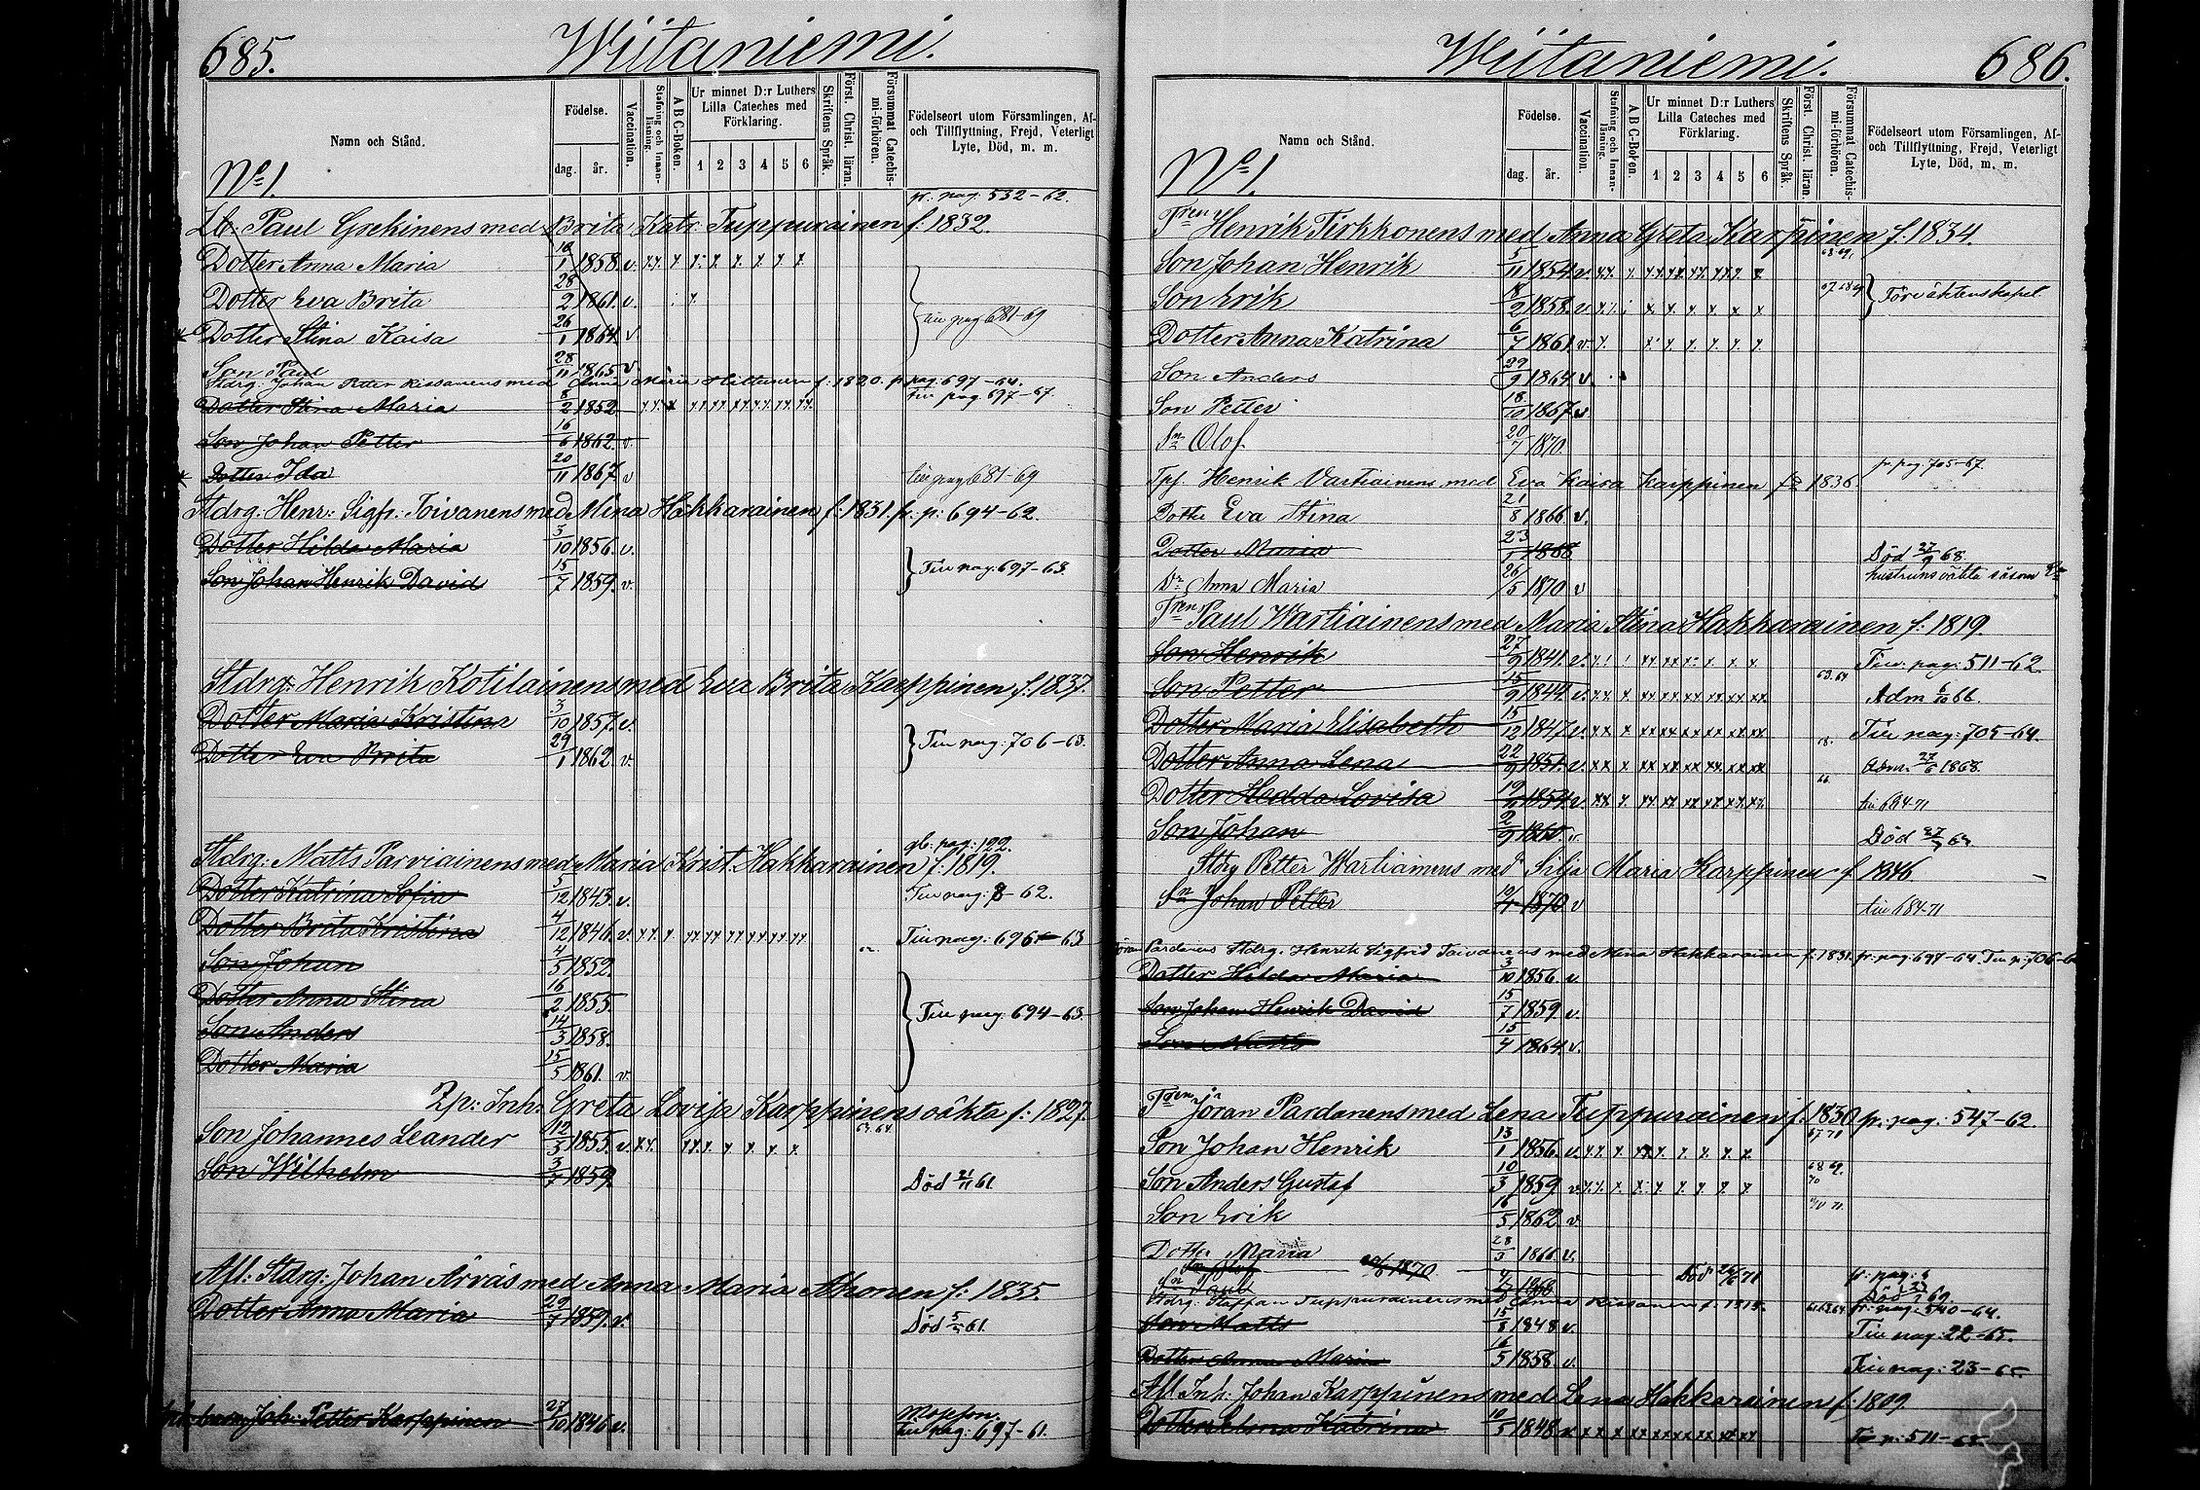 685. Wiitaniemi.
Namn och Stånd.
Födelse.
dag. år.
Vaccination.
Stafning och Innanläsning.
A B C-Boken.
Ur minnet D:r Luthers Lilla Cateches med Förklaring.
1 2 3 4 5 6
Skriftens Språk.
Först. Christ. läran.
Försummat Catechismi-förhören.
Födelseort utom Församlingen, Af- och Tillflyttning, Frejd, Veterligt Lyte, Död, m. m.
No 1.
fr. pag. 532-62.
Paul Grekinens med Brita Katr. Tuppurainen f. 1832.
Dotter Anna Maria 1858. v.
Dotter Eva Brita 28/2 1861. v.
Dotter Stina Kaisa 26/1 1864 v till pag 681-69
Son Paul 28/11 1865 v
Stdrg. Johan Petter Kissanens med Anna Maria f. 1820. fr. pag. 697-64.
Dotter Stina Maria 8/2 1852 till pag. 697-67.
Son Johan Petter 16/6 1862 v.
Dotter Ida 20/11 1867 v till pag 681-69
Stdrg. Henr: Sigfr: Toivanens med Mina Hakkarainen f. 1831. fr. p: 694-62.
Dotter Hilda Maria 3/10 1856. v.
Son Johan Henrik David 15/7 1859. v. Till pag: 697-63.
Stdrg: Henrik Kotilainens med Eva Brita Karppinen f. 1837.
Dotter Maria Kristina 3/10 1857. v.
Dotter Eva Brita 29/1 1862. v. Till pag: 706-63.
gb. pag: 122.
Stdrg: Matts Parviainens med Maria Krist. Hakkarainen f. 1819.
Dotter Katrina Sofia 5/12 1843. v. Till pag: 8-62.
Dotter Brita Kristina 4/12 1846. v. Till pag: 696-63
Son Johan 4/5 1852.
Dotter Anna Stina 16/2 1855.
Son Anders 14/3 1858. Till pag: 694-63.
Dotter Maria 15/5 1861. v.
Inh: Greta Lovisa Karppinens oäkta f: 1827.
Son Johannes Leander 12/3 1855. v. 63.64.
Son Wilhelm 3/7 1859. Död 21/11 61.
Afl: Stdrg: Johan Arväs med Anna Maria Ahonen f: 1835.
Dotter Anna Maria 29/7 1859. v. Död 61.
Joh: Petter Karppinen 27/10 1846 v. till pag: 697-61.
Wiitaniemi. 686.
Namn och Stånd.
Födelse.
dag. år.
Vaccination.
Stafning och Innanläsning.
A B C-Boken.
Ur minnet D:r Luthers Lilla Cateches med Förklaring.
1 2 3 4 5 6
Skriftens Språk.
Först. Christ. läran.
Försummat Catechismi-förhören.
Födelseort utom Församlingen, Af- och Tillflyttning, Frejd, Veterligt Lyte, Död, m. m.
No 1.
Henrik Tirkkonens med Anna Greta Karppinen f. 1834.
Son Johan Henrik 5/11 1854. v. 68.69.
Son Erik 18/2 1858. v. 67 68 69 Före äktenskapet.
Dotter Anna Katrina 6/7 1861 v.
Son Anders 29/9 1864 v.
Son Petter 18/10 1867 v
Sn Olof 20/7 1870
fr. pag. 705-67.
Henrik Vartiainens med Eva Kaisa Karppinen f 1836
Dotter Eva Stina 21/8 1866 v.
Dotter Maria 23 1868 Död 27/9 68.
Dr Anna Maria 26/5 1870 v
Paul Wartiainens med Maria Stina Hakkarainen f. 1819.
Son Henrik 27/9 1841. v. Till pag: 511-62.
Son Petter 15/9 1844. v. 63.64 Adm 66.
Dotter Maria Elisabeth 15/12 1847 v. Till pag: 705-64.
Dotter Anna Lena 22/9 1851. v. Adm. 1868.
Dotter Hedda Lovisa 1854. v. till 684-71
Son Johan 2/9 1860. v Död
Stdrg Petter Wartiainens med Silja Maria Karppinen f 1846
Sn Johan Petter 1870 v till 684-71
Stdrg. Henrik Sigfrid Toivanens med Mina Hakkarainen f. 1831. fr. pag. 697-64.
Dotter Hilda Maria 3/10 1856. v.
Son Johan Henrik David 15/7 1859 v.
Son Matts 15/4 1864. v.
Jöran Pardanens med Lena Tuppurainen f. 1830 fr. pag: 547-62.
Son Johan Henrik 13/1 1856. v.
Son Anders Gustaf 10/3 1859 v. 68 69. 70
Son Erik 16/5 1862 v.
Dotter Maria 28/3 1866 v.
Olof 1870 Död
Sn Paul
Stdrg. Staffan Tuppurainens med Anna Kissanen f. 1818. fr. pag: 540-64.
Son Matts 15/8 1848 v. Till pag: 22-65.
Dotter Anna Maria 16/5 1858. v. Till pag: 23-65.
Afl. Inh: Johan Karppinens med Lena Hakkarainen f. 1809.
Dotter Katrina 10/5 1848 511-